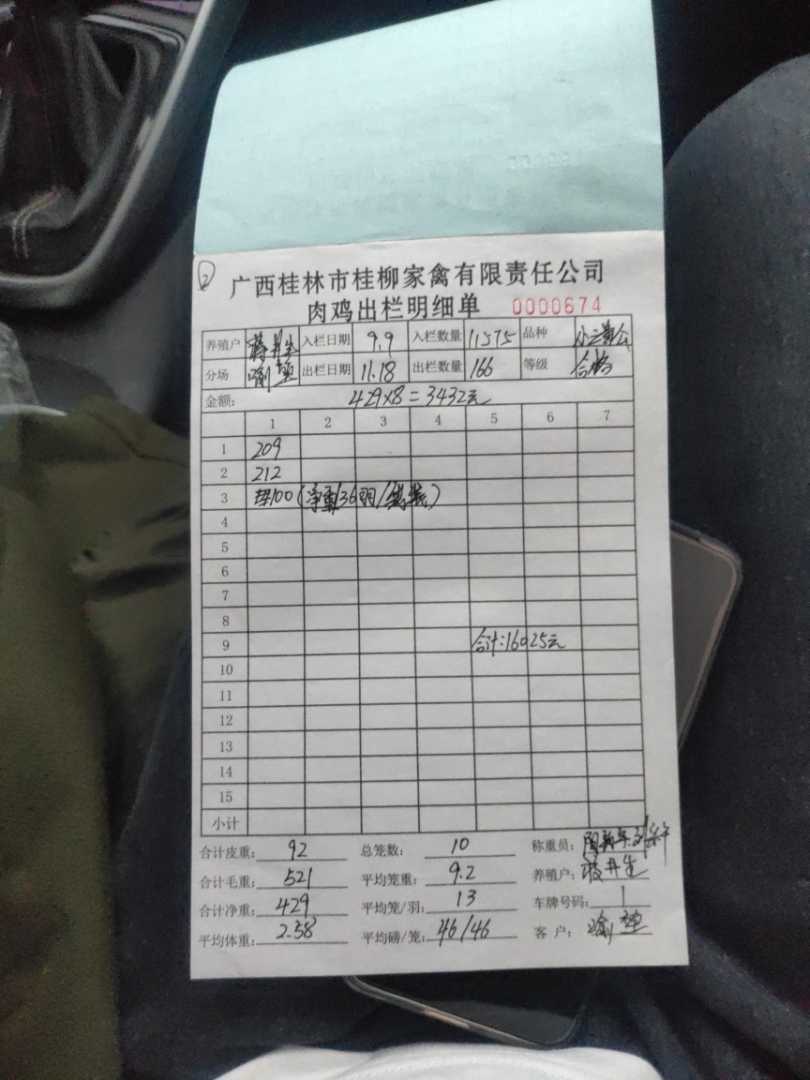 ②
广西桂林市桂柳家禽有限责任公司
肉鸡出栏明细单 0000674
养殖户 蒋井生 入栏日期 9.9 入栏数量 11575 品种
分场 出栏日期 11.18 出栏数量 166 等级 合格
金额: 429×8=3432元
1 2 3 4 5 6 7
1 209
2 212
3 100(净重36羽/
4
5
6
7
8
9 合计:16025元
10
11
12
13
14
15
小计
合计皮重: 92 总笼数: 10 称重员:
合计毛重: 521 平均笼重: 9.2 养殖户: 蒋井生
合计净重: 429 平均笼/羽: 13 车牌号码: 1
平均体重: 2.58 平均磅/笼: 46/46 客户: